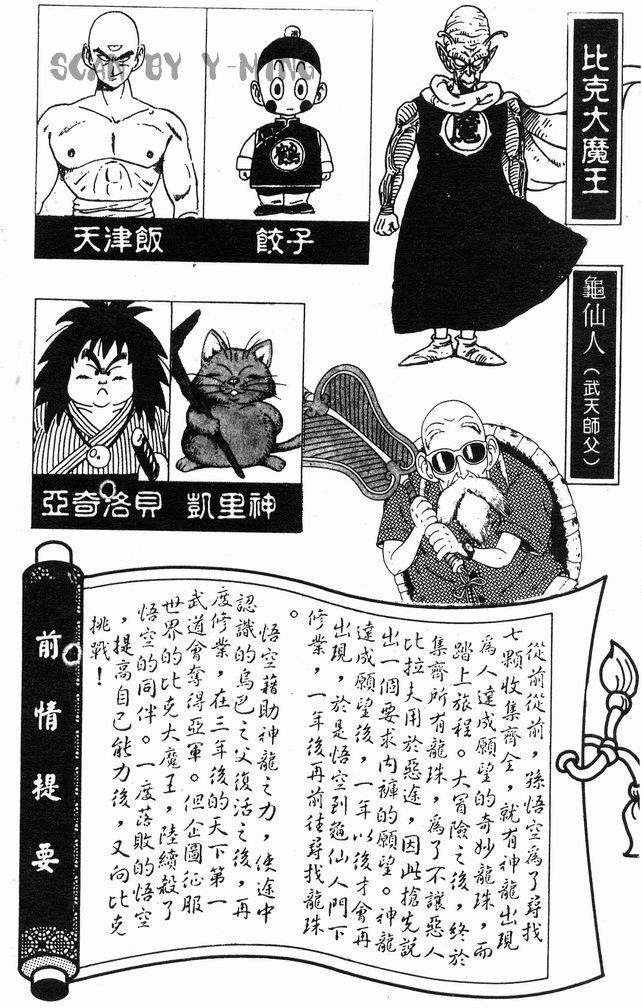 SCAN BY Y-MING
比克大魔王
魔
鶴
天津飯
餃子
龜仙人（武天師父）
亞奇洛貝
凱里神
前情提要
從前從前，孫悟空為了尋找
七顆收集齊全，就有神龍出現
為人達成願望的奇妙龍珠，而
踏上旅程。大冒險之後，終於
集齊所有龍珠，為了不讓惡人
比拉夫用於惡途，因此搶先說
出一個要求內褲的願望。神龍
達成願望後，一年以後才會再
出現，於是悟空到龜仙人門下
修業，一年後再前往尋找龍珠
。
悟空藉助神龍之力，使途中
認識的烏巴之父復活之後，再
度修業，在三年後的天下第一
武道會奪得亞軍。但企圖征服
世界的比克大魔王，陸續殺了
悟空的同伴。一度落敗的悟空
，提高自己能力後，又向比克
挑戰！